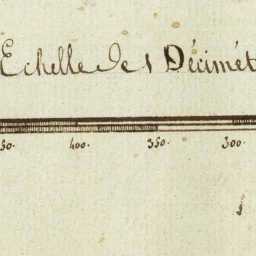 Echelle des Décimét
50. 400. 350. 300.